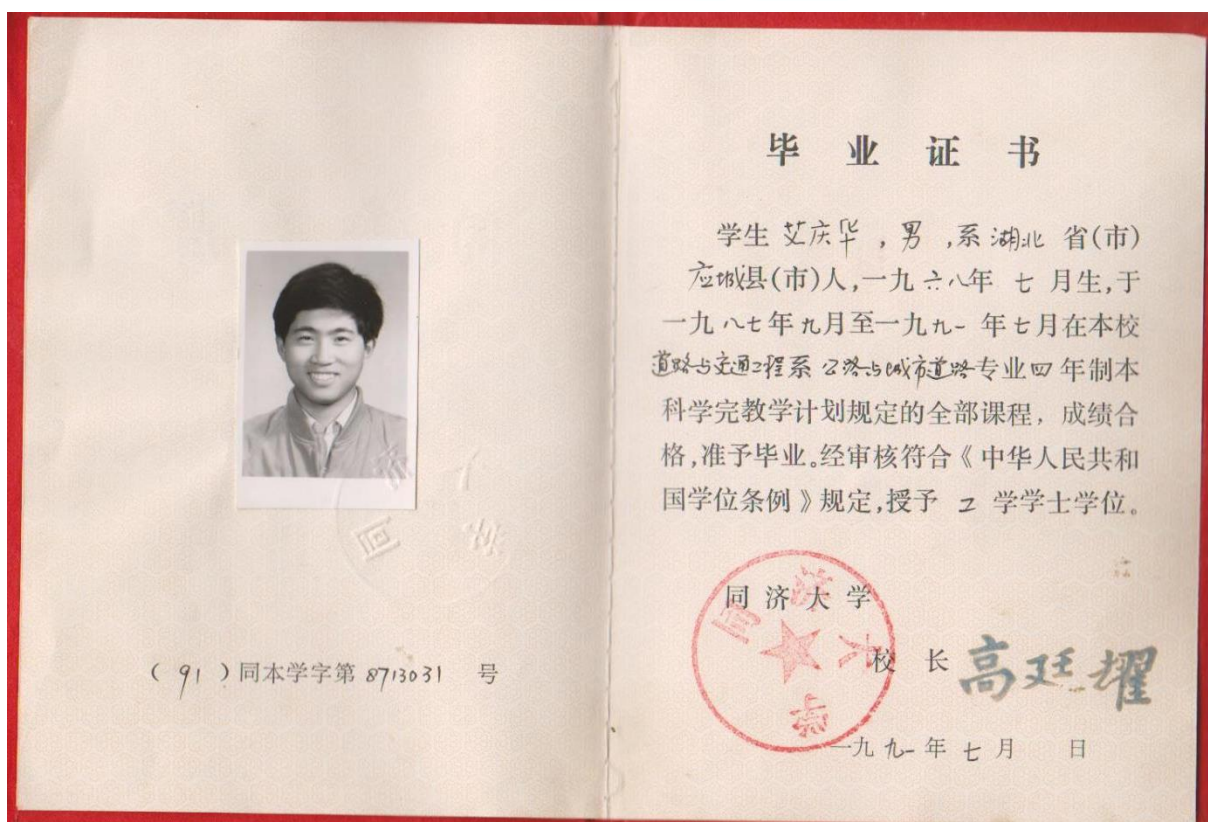 （91）同本学字第 8713031 号
毕业证书
学生 艾庆华，男，系湖北 省(市)
应城县(市)人,一九六八年 七 月生,于
一九八七年九月至一九九一年七月在本校
道路与交通工程系 公路与城市道路专业四年制本
科学完教学计划规定的全部课程，成绩合
格,准予毕业。经审核符合《中华人民共和
国学位条例》规定,授予 工 学学士学位。
同济大学
校 长 高廷耀
一九九一年七月 日
同济大学